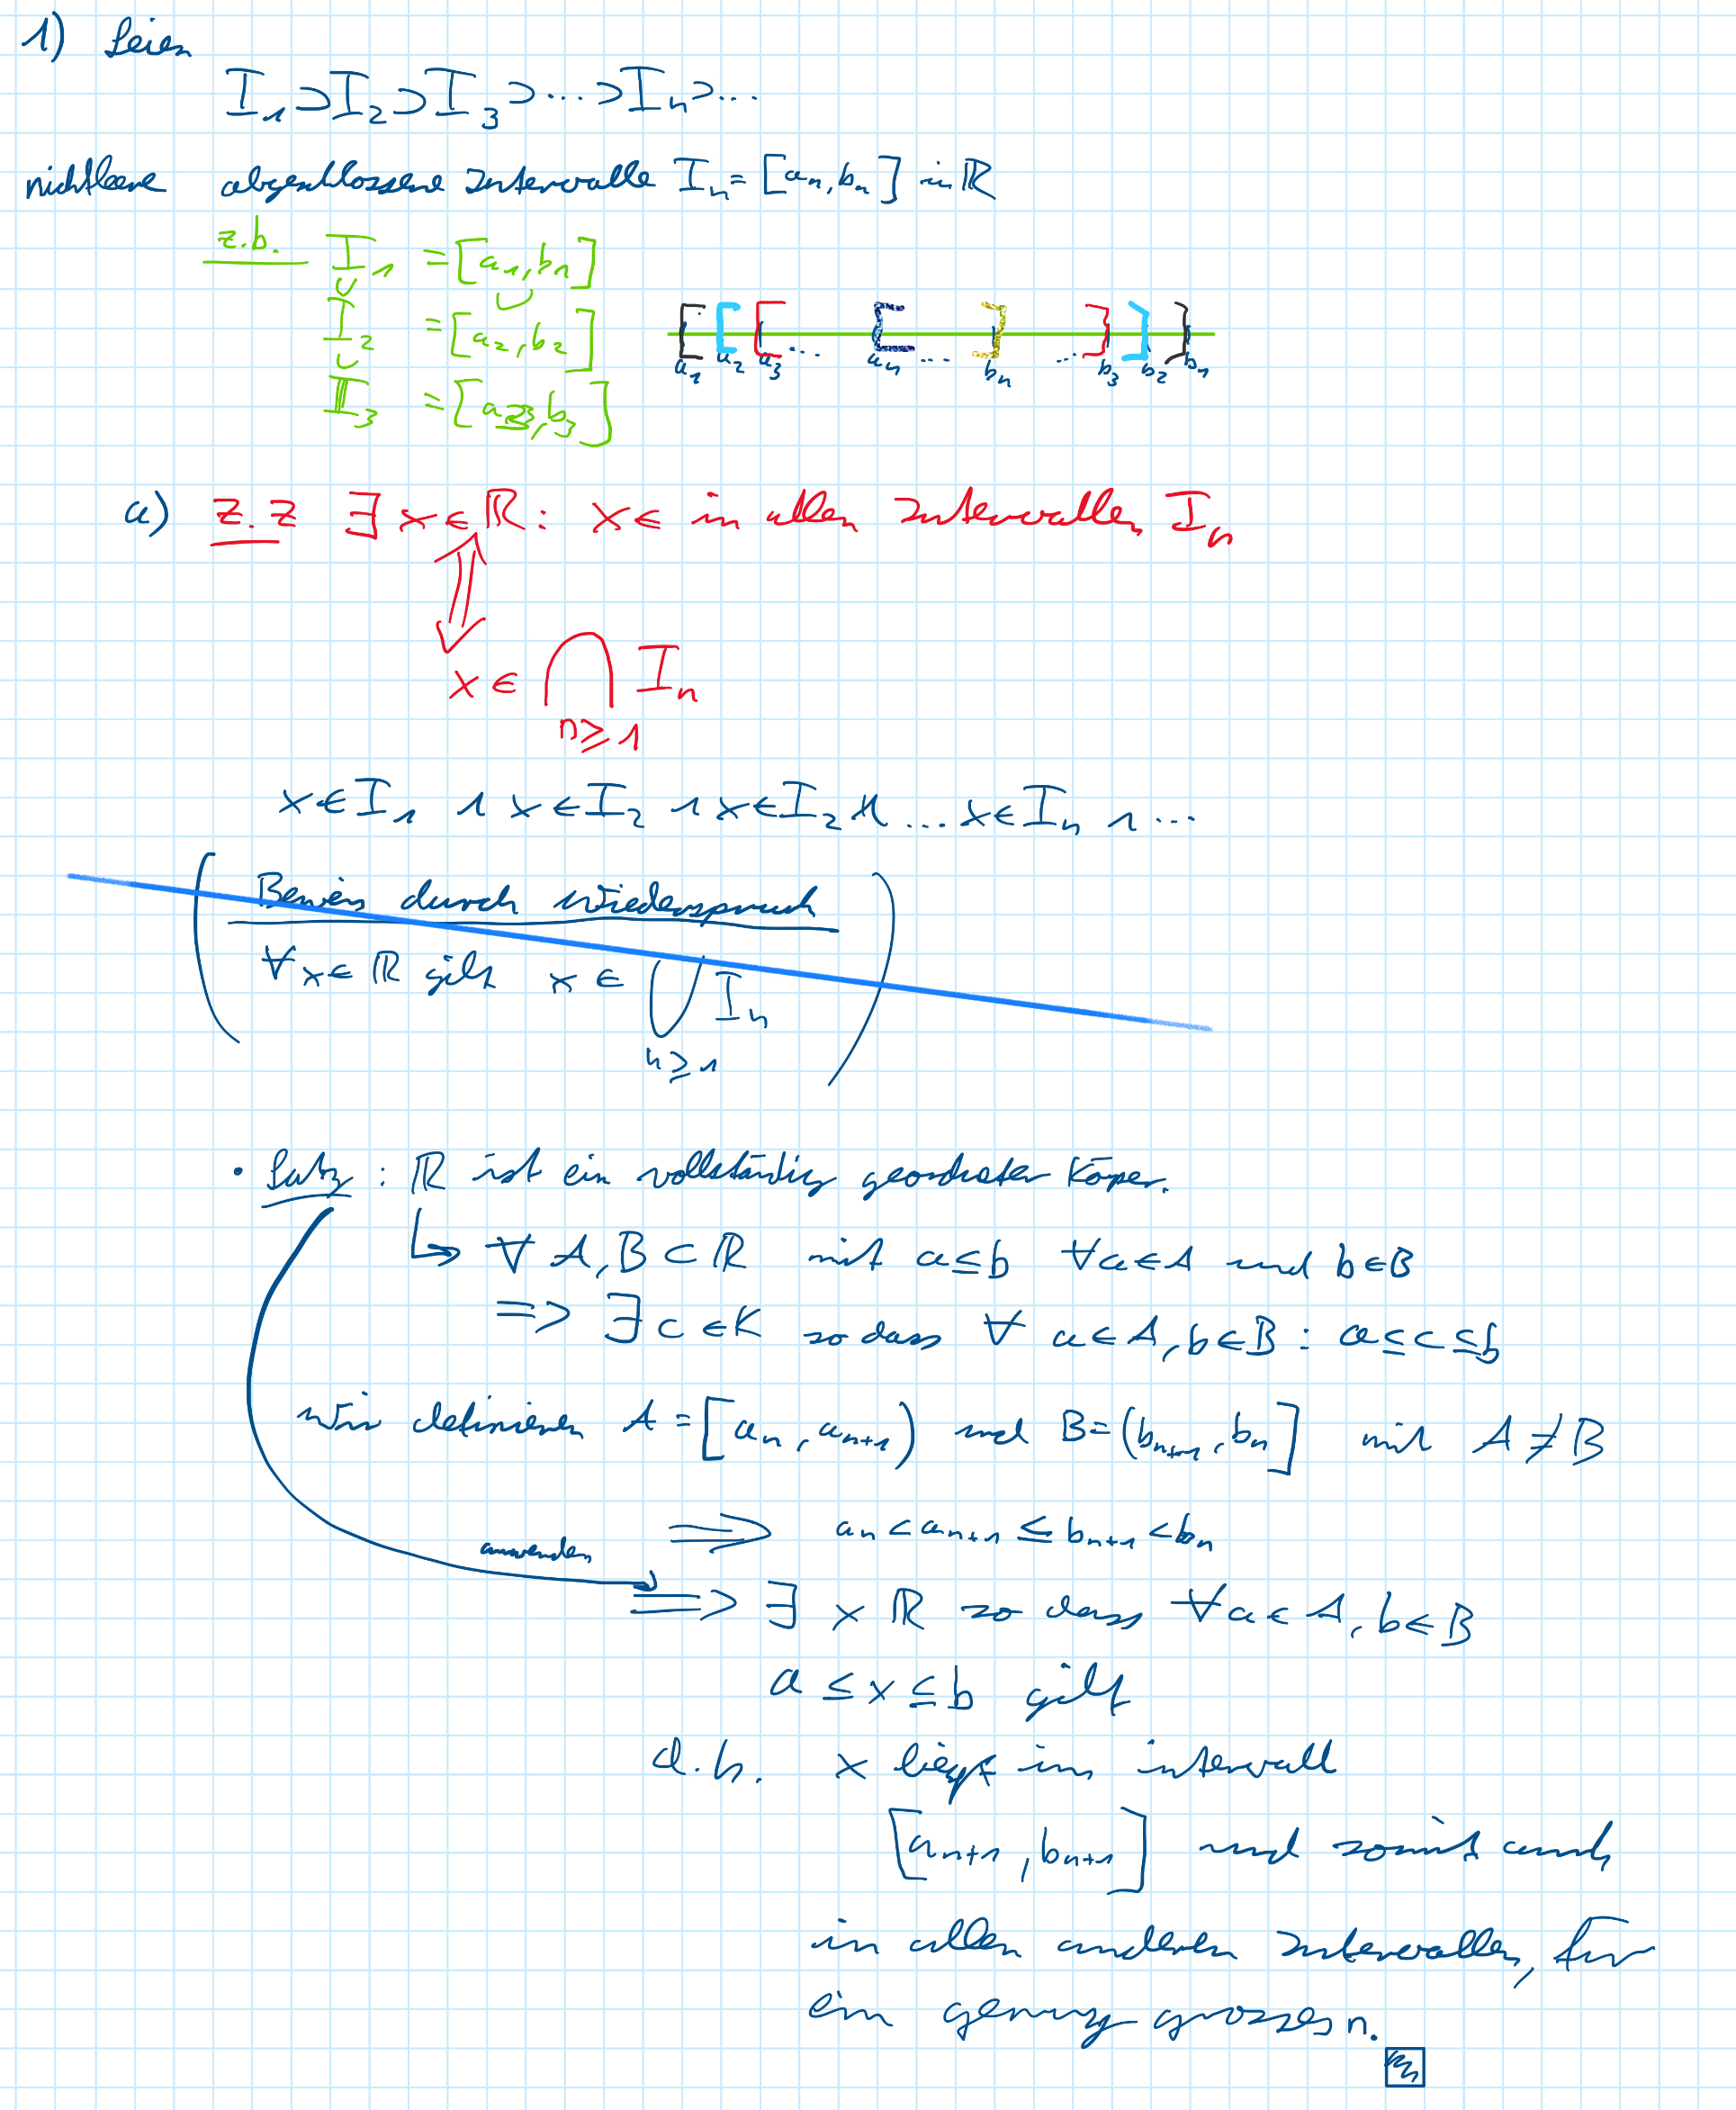 1) Seien
I₁⊃I₂⊃I₃⊃...⊃Iₙ⊃...
nichtleere abgeschlossene Intervalle Iₙ=[aₙ,bₙ] in ℝ
z.b. I₁ =[a₁,b₁]
∪ ∪
I₂ =[a₂,b₂]
∪
I₃ =[a₃,b₃]
[ [ [ [ ] ] ] ]
a₁ a₂ a₃ ... aₙ ... bₙ ... b₃ b₂ b₁
a) z.z ∃ x∈ℝ: x∈ in allen Intervallen Iₙ
⇕
x∈ ⋂ Iₙ
n≥1
x∈I₁ ∧ x∈I₂ ∧ x∈I₂ ∧ ... x∈Iₙ ∧ ...
( Beweis durch Wiederspruch )
∀x∈ℝ gilt x∈ ⋃ Iₙ
n≥1
• Satz: ℝ ist ein vollständig geordneter Köper.
↳ ∀ A,B⊂ℝ mit a≤b ∀a∈A und b∈B
=> ∃c∈K so dass ∀ a∈A,b∈B: a≤c≤b
Wir definieren A=[aₙ,aₙ₊₁) und B=(bₙ₊₁,bₙ] mit A≠B
⟹ aₙ<aₙ₊₁≤bₙ₊₁<bₙ
anwenden
⟹ ∃ x ℝ so dass ∀a∈A,b∈B
a≤x≤b gilt
d.h. x liegt im intervall
[aₙ₊₁,bₙ₊₁] und somit auch
in allen anderen Intervallen, für
ein genug grosses n.